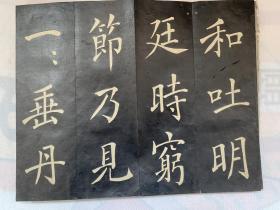 和吐明
廷時窮
節乃見
一:垂丹